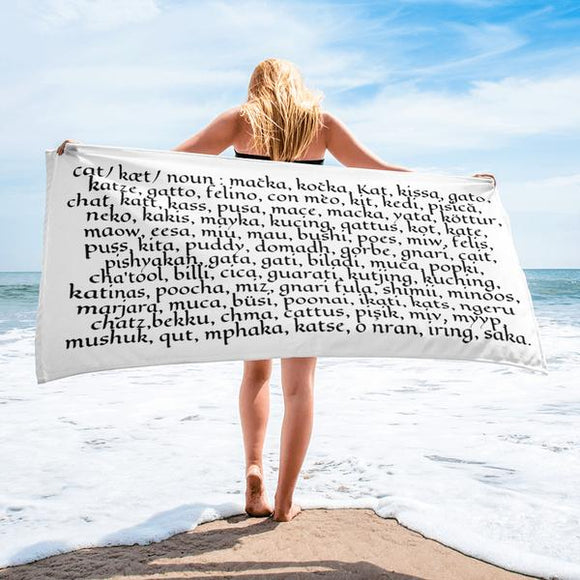 cat/ kæt/ noun : mačka, kočka, Kat, kissa, gato,
katze, gatto, felino, con mèo, kit, kedi, pisică,
chat, katt, kass, pusa, maçe, macka, yata, köttur,
neko, kakis, mavka, kucing, qattus, kot, kate,
maow, eesa, miu, mau, bushi, poes, miw, felis,
puss, kita, puddy, domadh, go'be, gnari, cait,
pishyakah, gata, gati, bilaai, miuca, popki,
cha'tool, billi, cica, guarati, kutjing, kuching,
katinas, poocha, miz, gnari fula, shimii, minoos,
marjara, muca, büsi, poonai, ikati, kats, ngeru
chatz,bekku, chma, cattus, pişik, miv, mýyp
mushuk, qut, mphaka, katse, o nran, iring, saka.